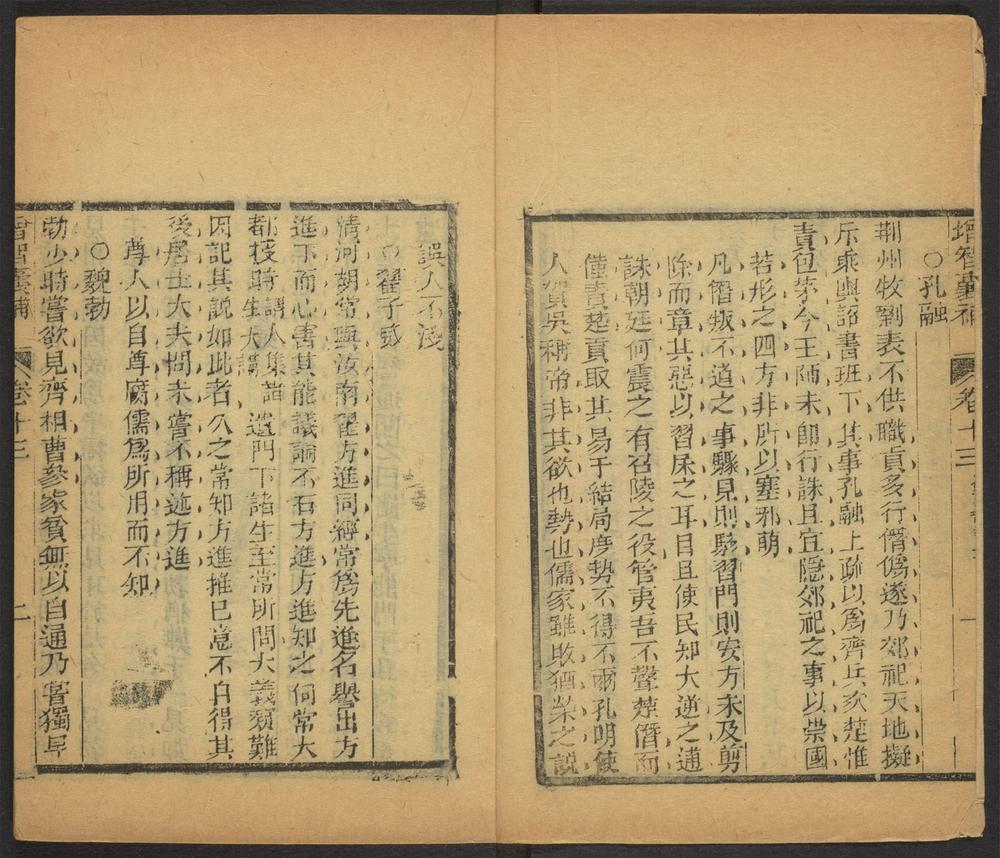 增智囊補 卷十三 一
○孔融
荆州牧劉表不供職貢多行僭僞遂乃郊祀天地擬
斥乘輿詔書班下其事孔融上疏以爲齊兵次楚惟
責包茅今王師未卽行誅且宜隱郊祀之事以崇國
若形之四方非所以塞邪萌
凡僭叛不道之事驟見則駭習聞則安方未及剪
除而章其惡以習民之耳目且使民知大逆之逋
誅朝廷何震之有召陵之役管夷吾不聲楚僭而
僅責楚貢取其易于結局度勢不得不爾孔明使
人賀吳稱帝非其欲也勢也儒家雖敗猶榮之說
誤人不淺
○翟子威
清河胡常與汝南翟方進同經常爲先進名譽出方
進下而心害其能議論不右方進方進知之伺常大
都授時謂人集諸生大講遣門下諸生至常所問大義疑難
因記其說如此者久之常知方進推已意不自得其
後居士大夫間未嘗不稱述方進
尊人以自尊腐儒爲所用而不知
○魏勃
勃少時嘗欲見齊相曹參家貧無以自通乃嘗獨早
增智囊補 卷十三 二